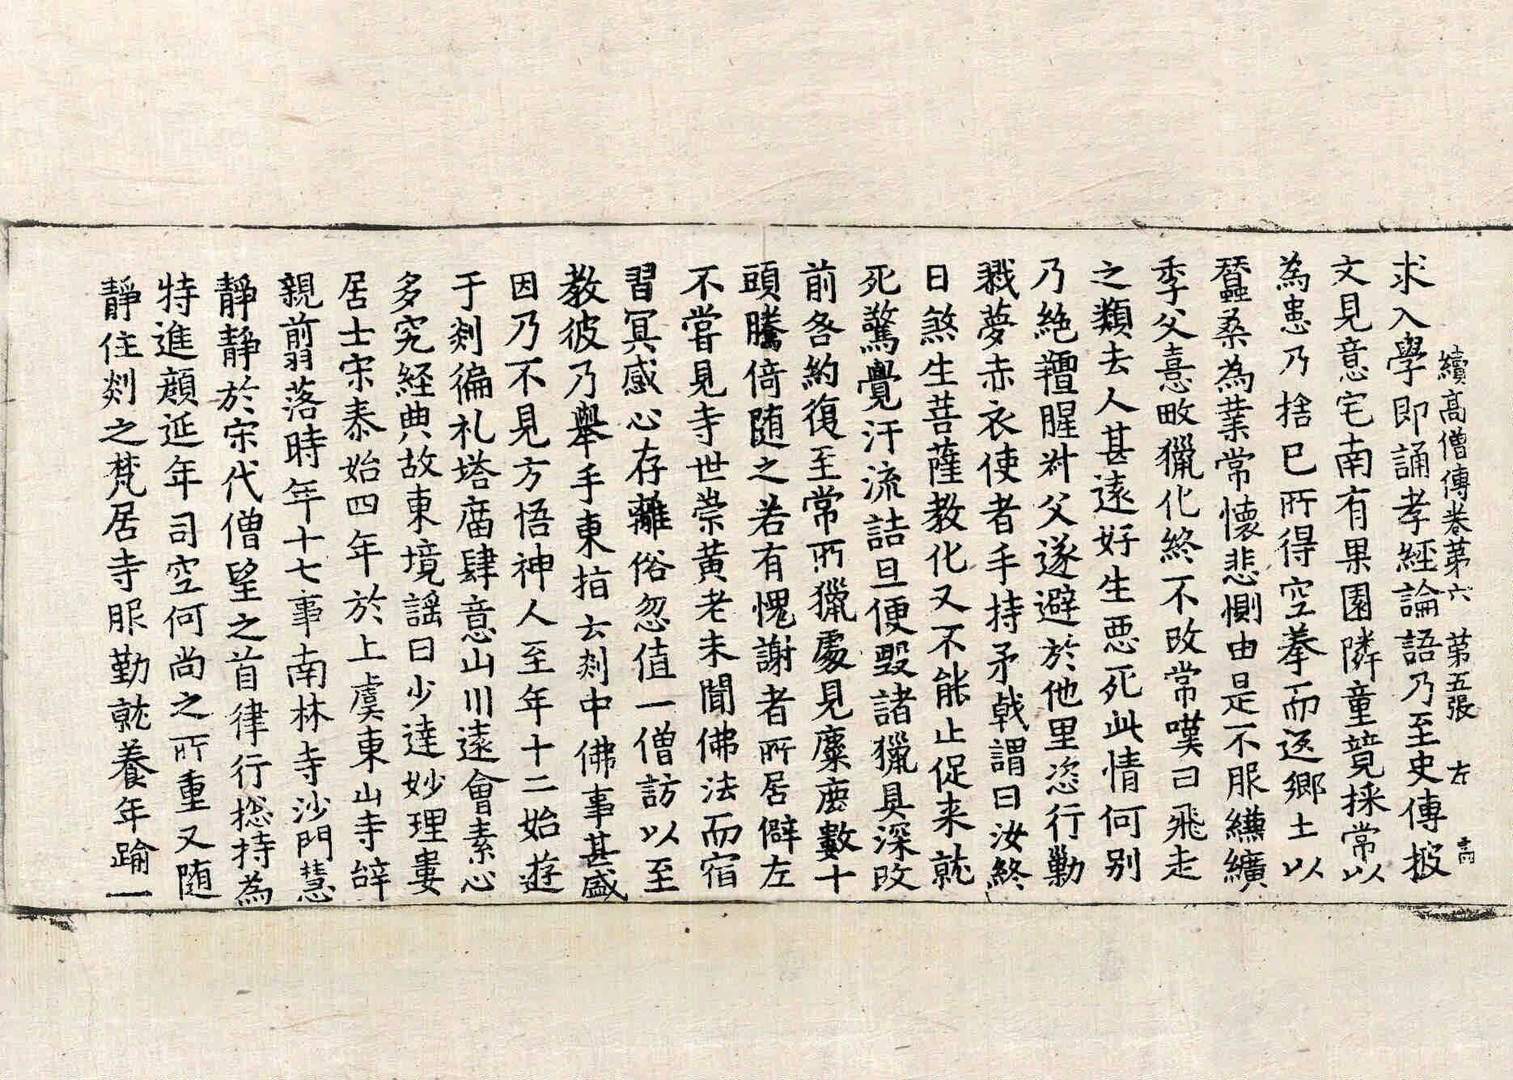 續高僧傳卷苐六　苐五張　左
求入學即誦孝經論語乃至史傳披
文見意宅南有果園隣童競採常以
為患乃捨已所得空拳而返鄉土以
蠶桑為業常懷悲惻由是不服纊
季父憙畋獵化終不改常嘆曰飛走
之類去人甚遠好生惡死此情何別
乃絶羶腥叔父遂避於他里恣行勦
戮夢赤衣使者手持矛戟謂曰汝終
日煞生菩薩教化又不能止促来就
死驚覺汗流詰旦便毀諸獵具深改
前各約復至常所獵處見麋鹿數十
頭騰倚随之若有愧謝者所居僻左
不嘗見寺世崇黃老未聞佛法而宿
習冥感心存離俗忽值一僧訪以至
教彼乃舉手東指云剡中佛事甚盛
因乃不見方悟神人至年十二始遊
于剡徧礼塔庿肆意山川遠會素心
多究経典故東境謡曰少達妙理婁
居士宋泰始四年於上虞東山寺辞
親剪落時年十七事南林寺沙門慧
靜靜於宋代僧望之首律行捴持為
特進顔延年司空何尚之所重又随
靜住剡之梵居寺服勤就養年踰一